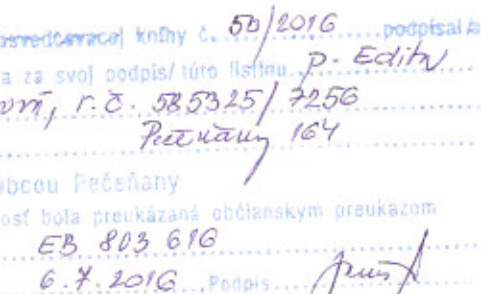 osvedčovacej knihy č. 50/2016 podpísal/a
a za svoj podpis/túto listinu p. Editu
r.č. 585325/7256
Pečeňany 164
obcou Pečeňany
osť bola preukázaná občianskym preukazom
EB 803 616
6.7.2016 Podpis